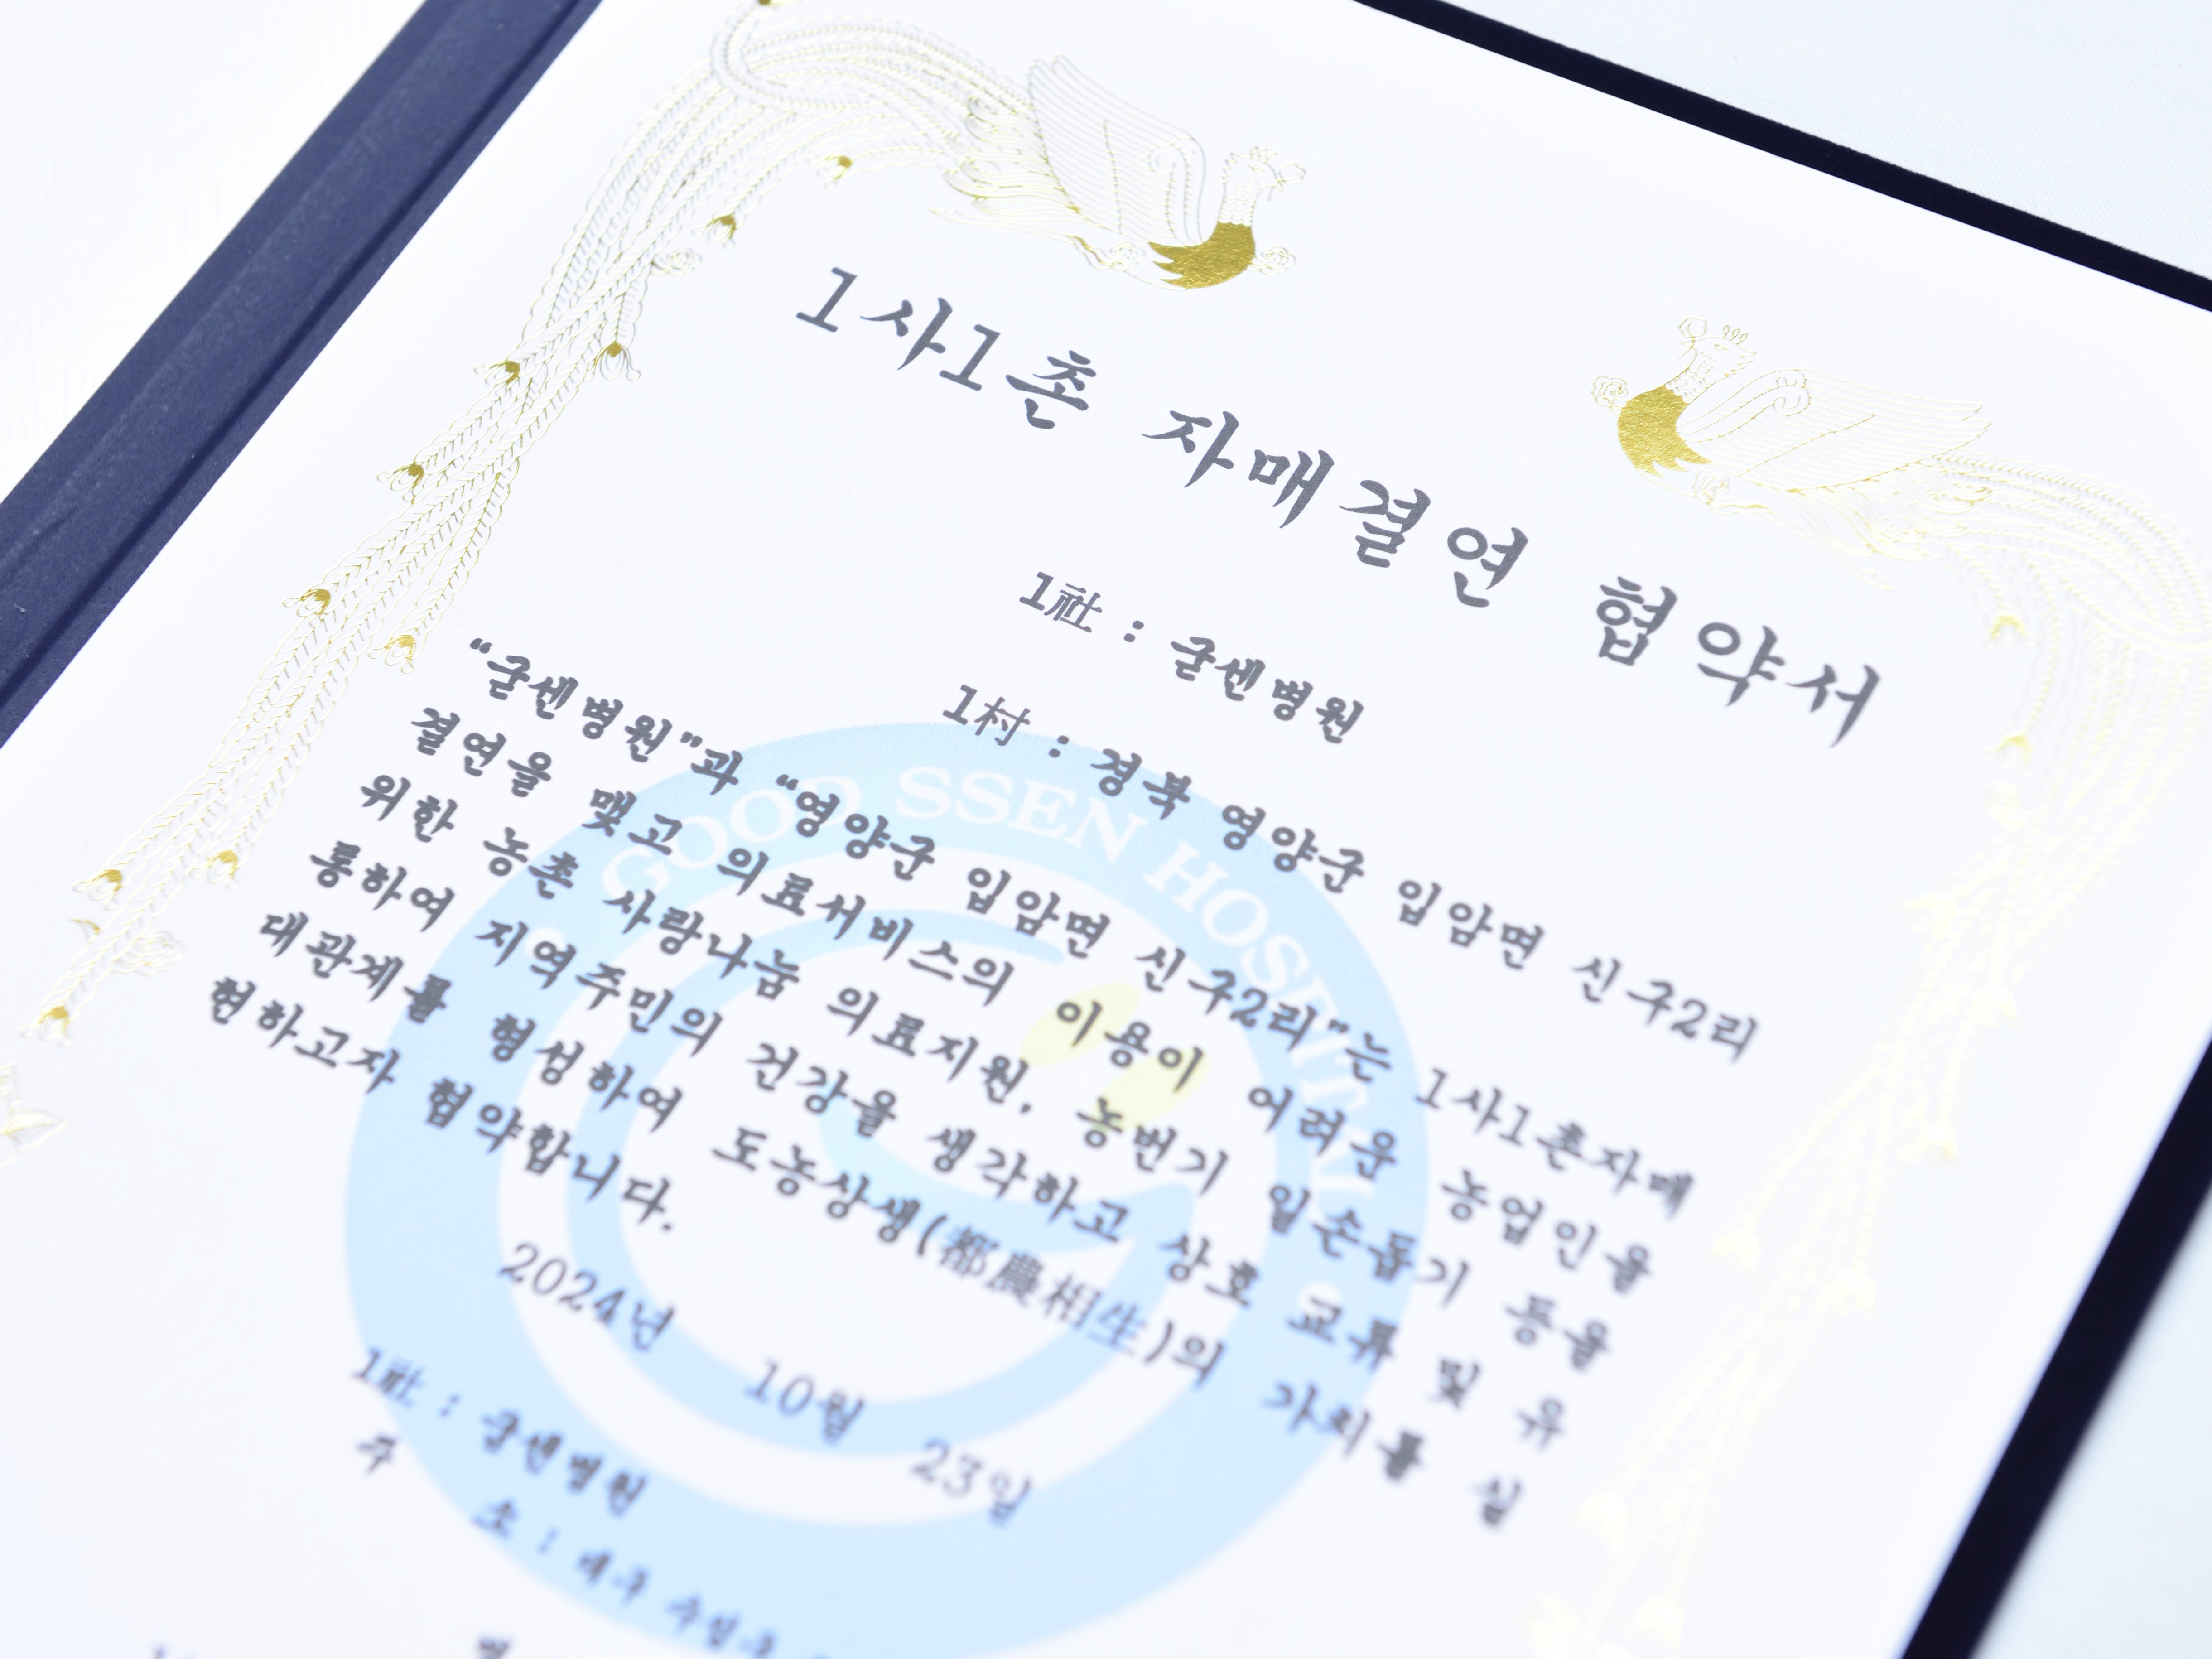 1사1촌 자매결연 협약서
1社 : 굳센병원
1村 : 경북 영양군 입암면 신구2리
“굳센병원”과 “영양군 입암면 신구2리”는 1사1촌자매
결연을 맺고 의료서비스의 이용이 어려운 농업인을
위한 농촌 사랑나눔 의료지원, 농번기 일손돕기 등을
통하여 지역주민의 건강을 생각하고 상호 교류 및 유
대관계를 형성하여 도농상생(都農相生)의 가치를 실
현하고자 협약합니다.
2024년 10월 23일
1社 : 굳센병원
주 소 : 대구 수성구
GOOD SSEN HOSPITAL